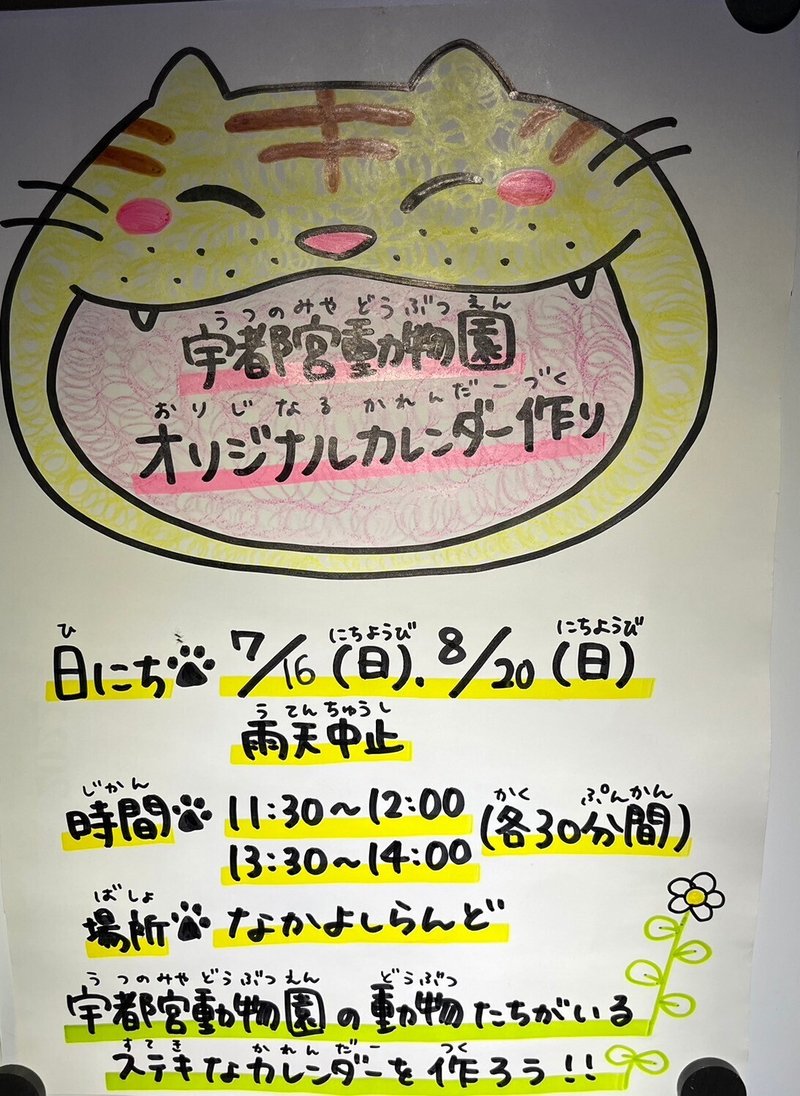 うつのみやどうぶつえん
宇都宮動物園
おりじなるかれんだーづく
オリジナルカレンダー作り
ひ にちようび にちようび
日にち 7/16(日).8/20(日)
うてんちゅうし
雨天中止
じかん
時間 11:30〜12:00
13:30〜14:00
かく ぷんかん
(各30分間)
ばしょ
場所 なかよしらんど
うつのみやどうぶつえん どうぶつ
宇都宮動物園の動物たちがいる
すてき かれんだー つく
ステキなカレンダーを作ろう!!